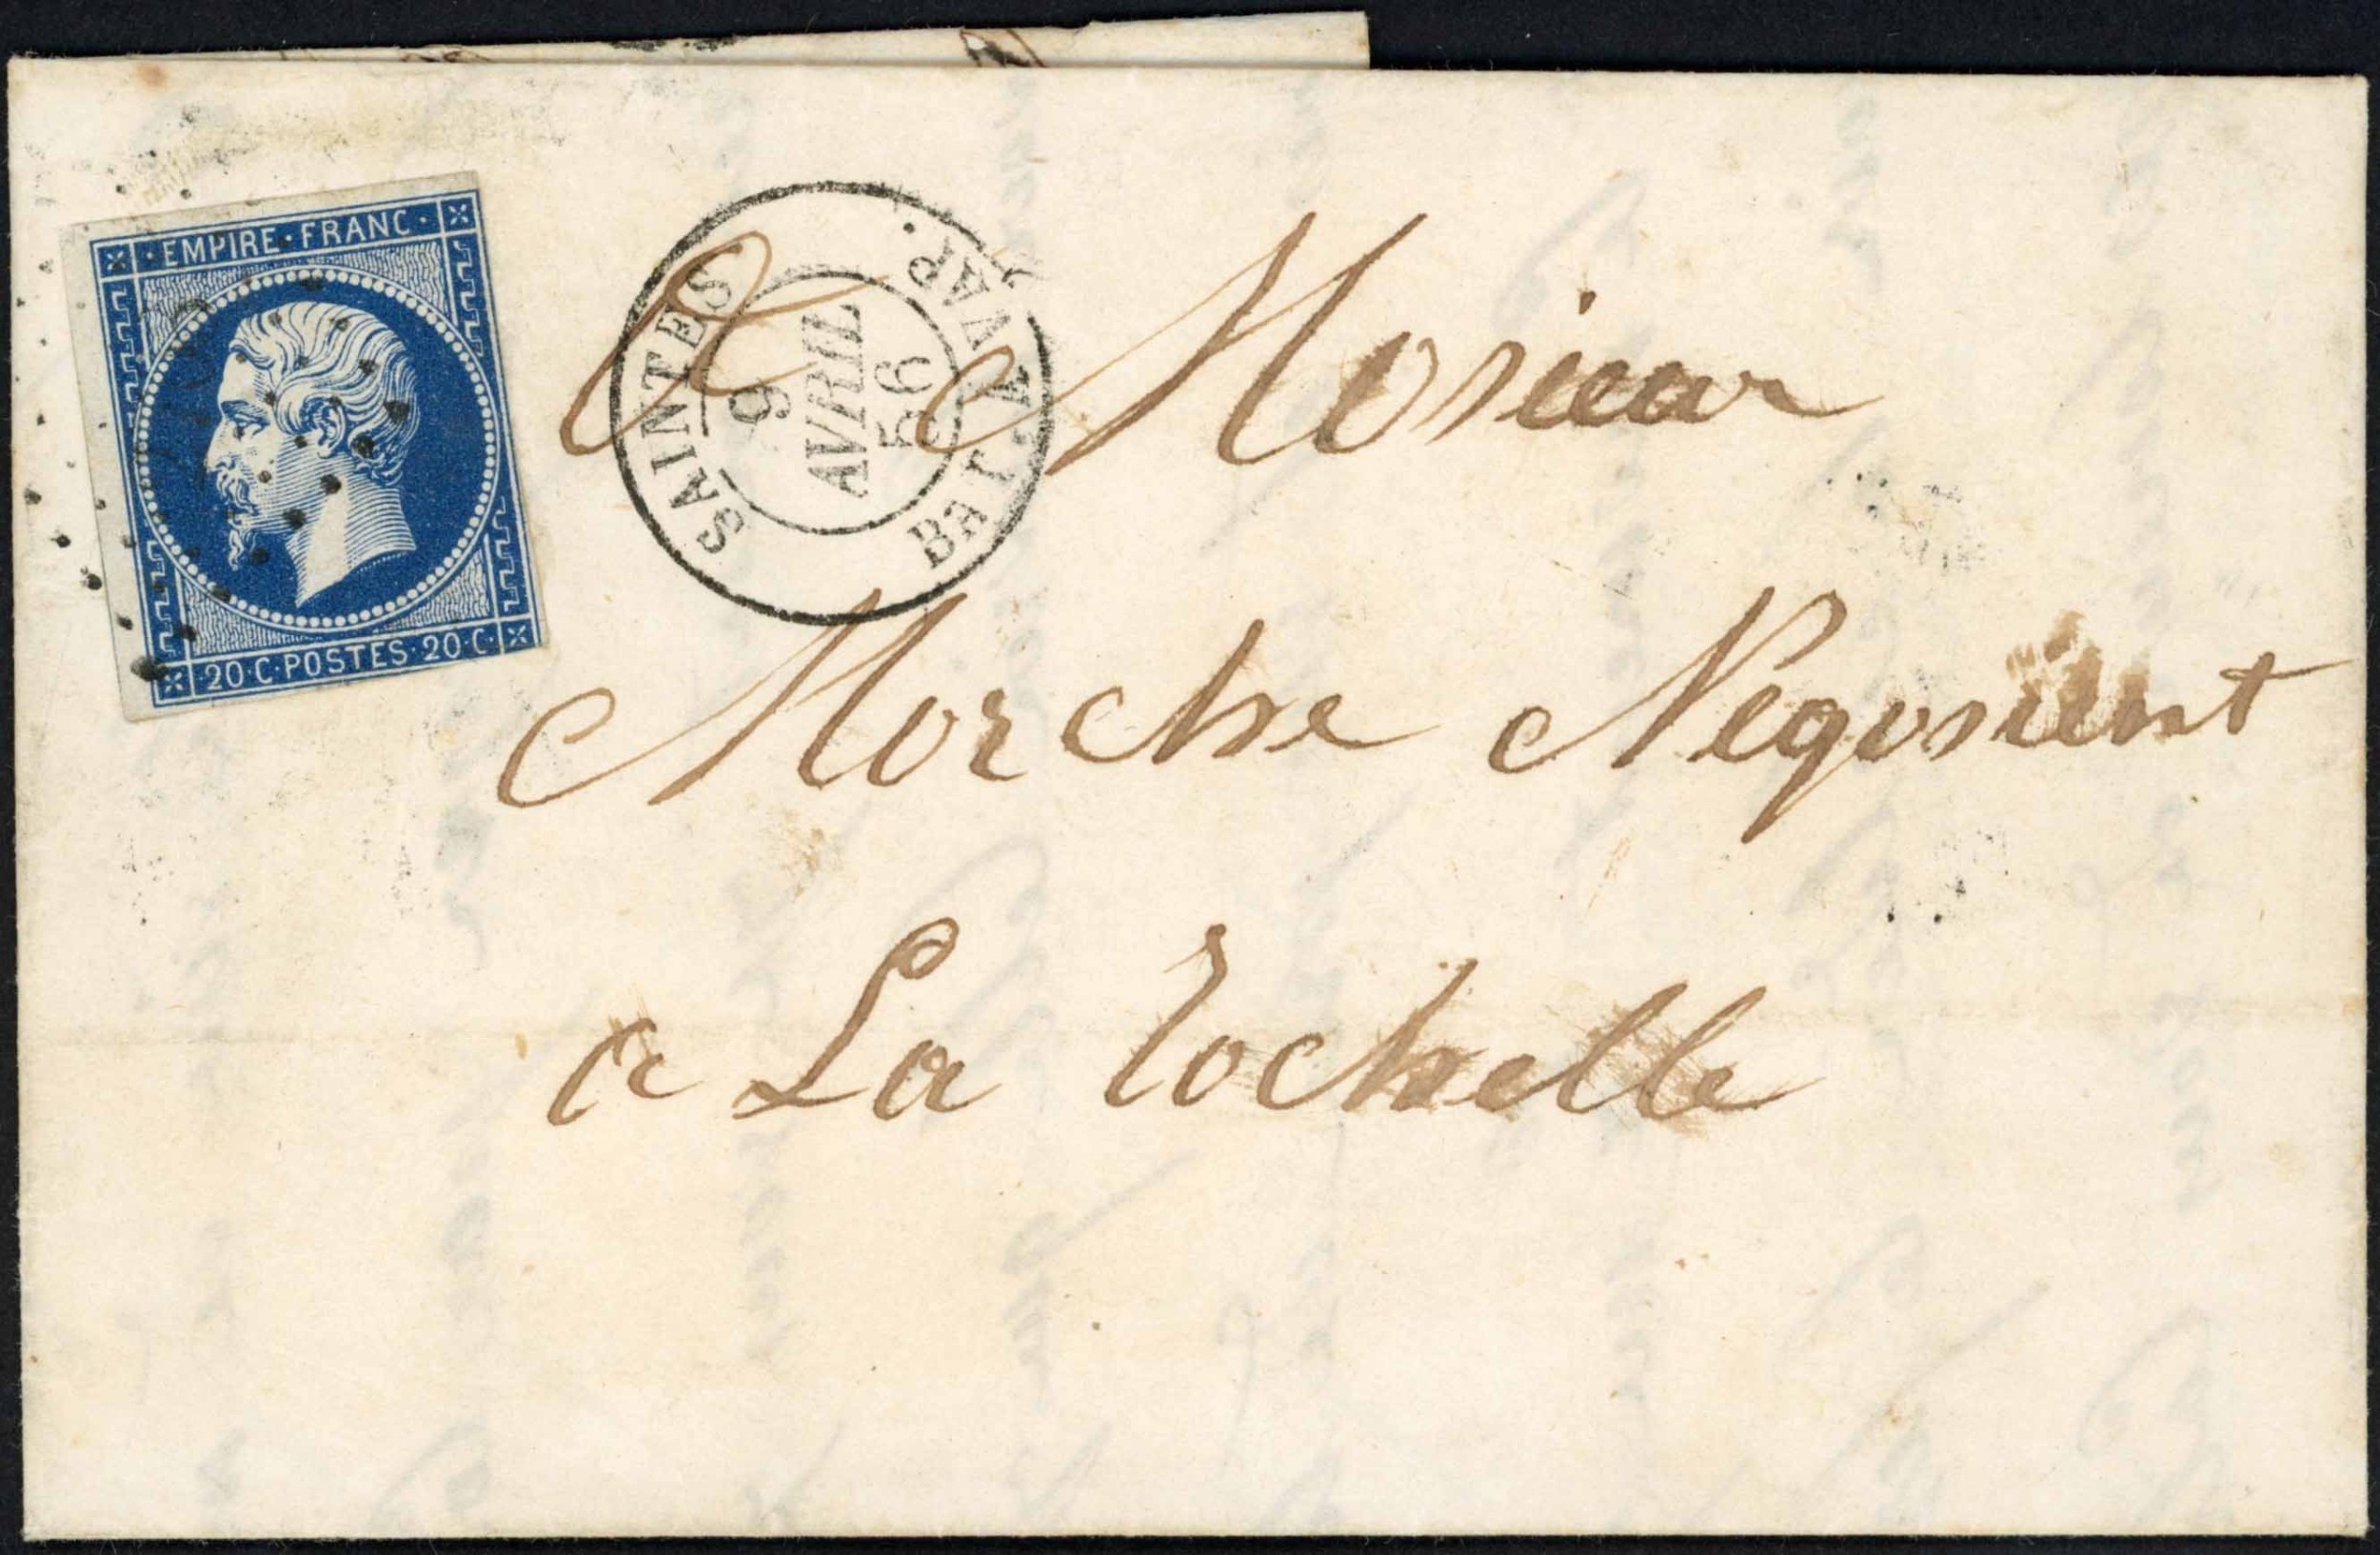 ·EMPIRE·FRANC·
20·C·POSTES·20·C·
SAINTES
9
AVRIL
56
Bau A VAP.
A Mosieur
Morche Négosient
a La rochelle